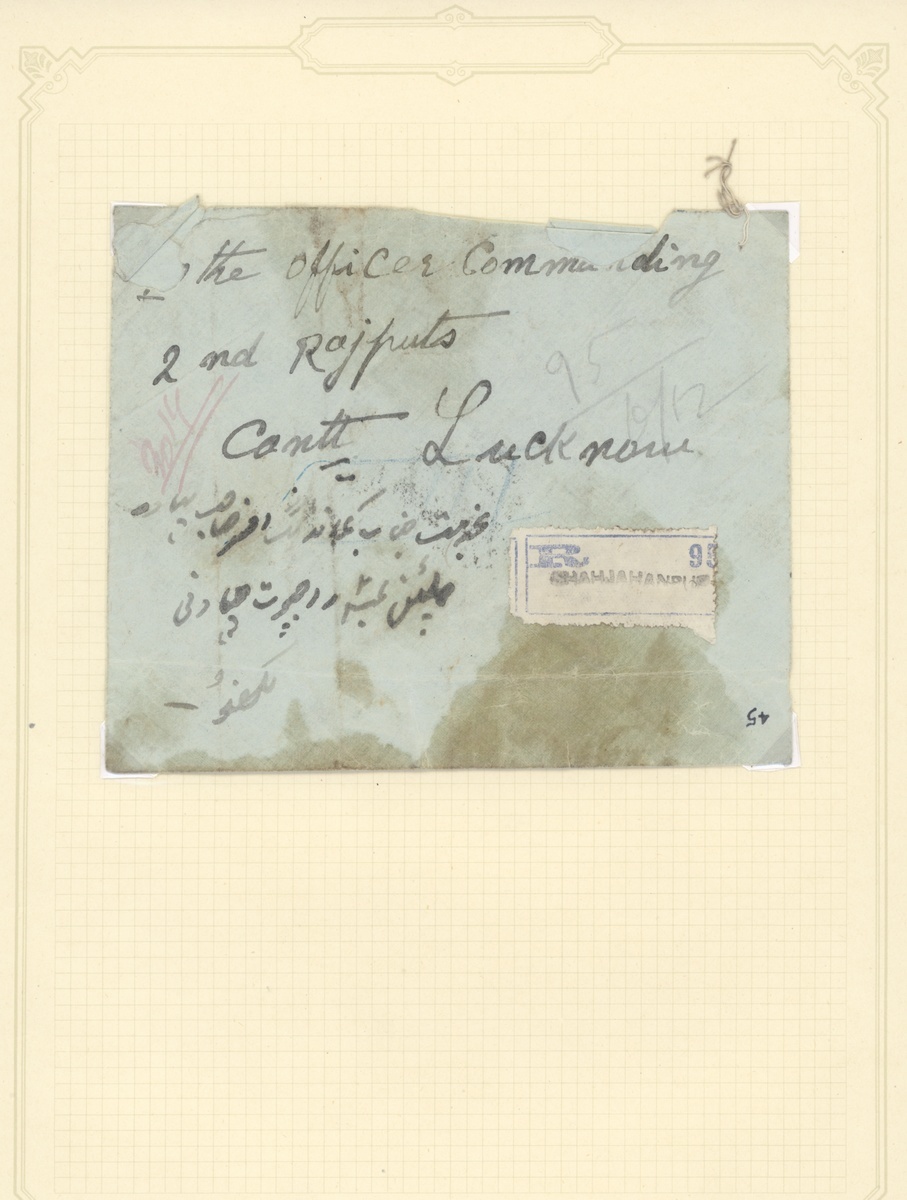 To the officer Commanding
2nd Rajputs
95
10/12
Cantt Lucknow
بخدمت جناب کمانڈنگ افسر صاحب بہادر
پلٹن نمبر ۲ راجپوت چھاونی
R 95
SHAHJAHANPUR
لکھنؤ
45